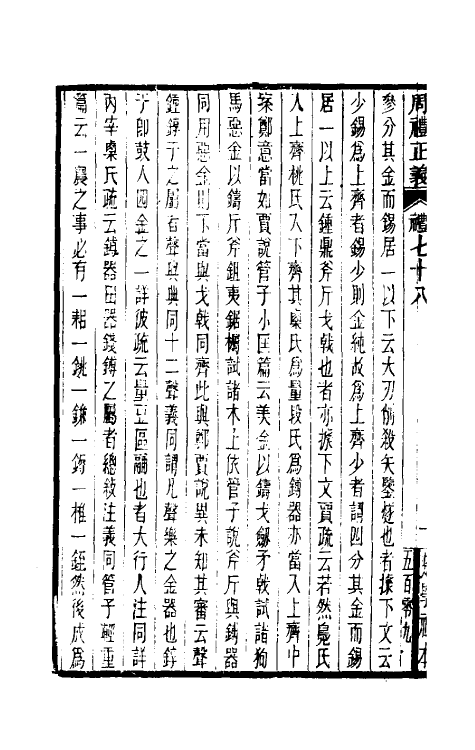 周禮正義　禮七十八
參分其金而錫居一以下云大刃削殺矢鑒燧也者據下文云
少錫爲上齊者錫少則金純故爲上齊少者謂四分其金而錫
居一以上云鍾鼎斧斤戈戟也者亦據下文賈疏云若然鳧氏
入上齊桃氏入下齊其㮚氏爲量段氏爲鎛器亦當入上齊中
案鄭意當如賈說管子小匡篇云美金以鑄戈劒矛戟試諸狗
馬惡金以鑄斤斧鉏夷鋸欘試諸木土依管子說斧斤與鎛器
同用惡金則下當與戈戟同齊此與鄭賈說異未知其審云聲
鍾錞于之屬者聲與典同十二聲義同謂凡聲樂之金器也錞
于卽鼓人四金之一詳彼疏云量豆區鬴也者大行人注同詳
內宰㮚氏疏云鎛器田器錢鎛之屬者總敍注義同管子輕重
篇云一農之事必有一耜一銚一鎌一鎒一椎一銍然後成爲